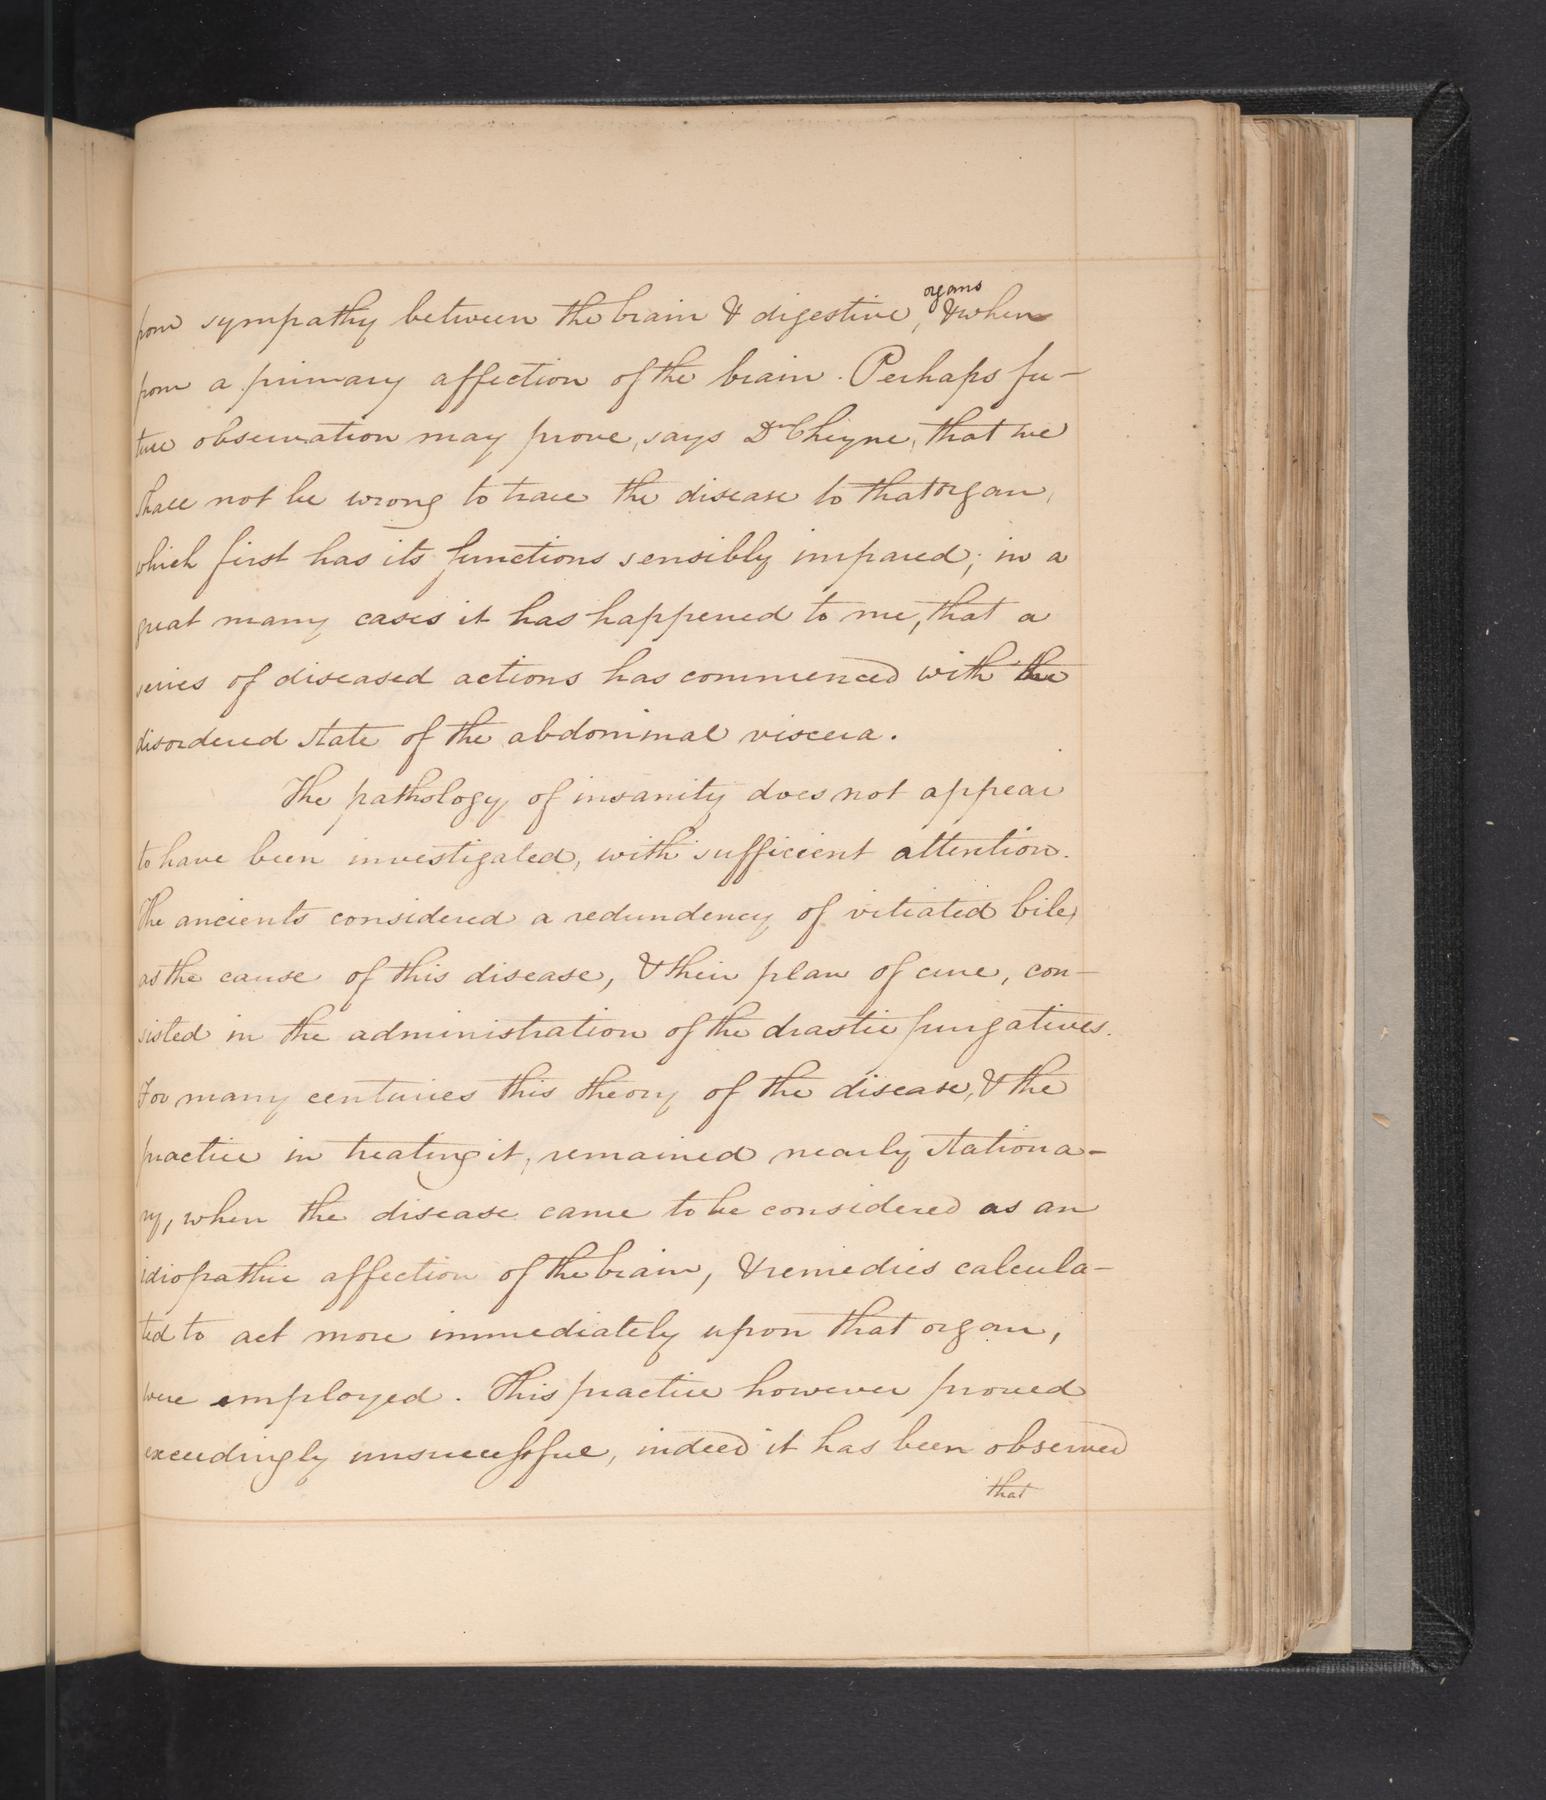 from sympathy between the brain & digestive, organs & when
from a primary affection of the brain. Perhaps fu-
ture observation may prove, says Dr Cheyne, that we
shall not be wrong to trace the disease to that organ,
which first has its functions sensibly impared; in a
great many cases it has happened to me, that a
series of diseased actions has commenced with the
disordered state of the abdominal viscera.
The pathology of insanity does not appear
to have been investigated, with sufficient attention.
The ancients considered a redundency of vitiated bile,
as the cause of this disease, & their plan of cure, con-
sisted in the administration of the drastic purgatives.
For many centuries this theory of the disease, & the
practice in treating it, remained nearly stationa-
ry, when the disease came to be considered as an
idiopathic affection of the brain, & remedies calcula-
ted to act more immediately upon that organ,
were employed. This practice however proved
exceedingly unsuccessful, indeed it has been observed
that